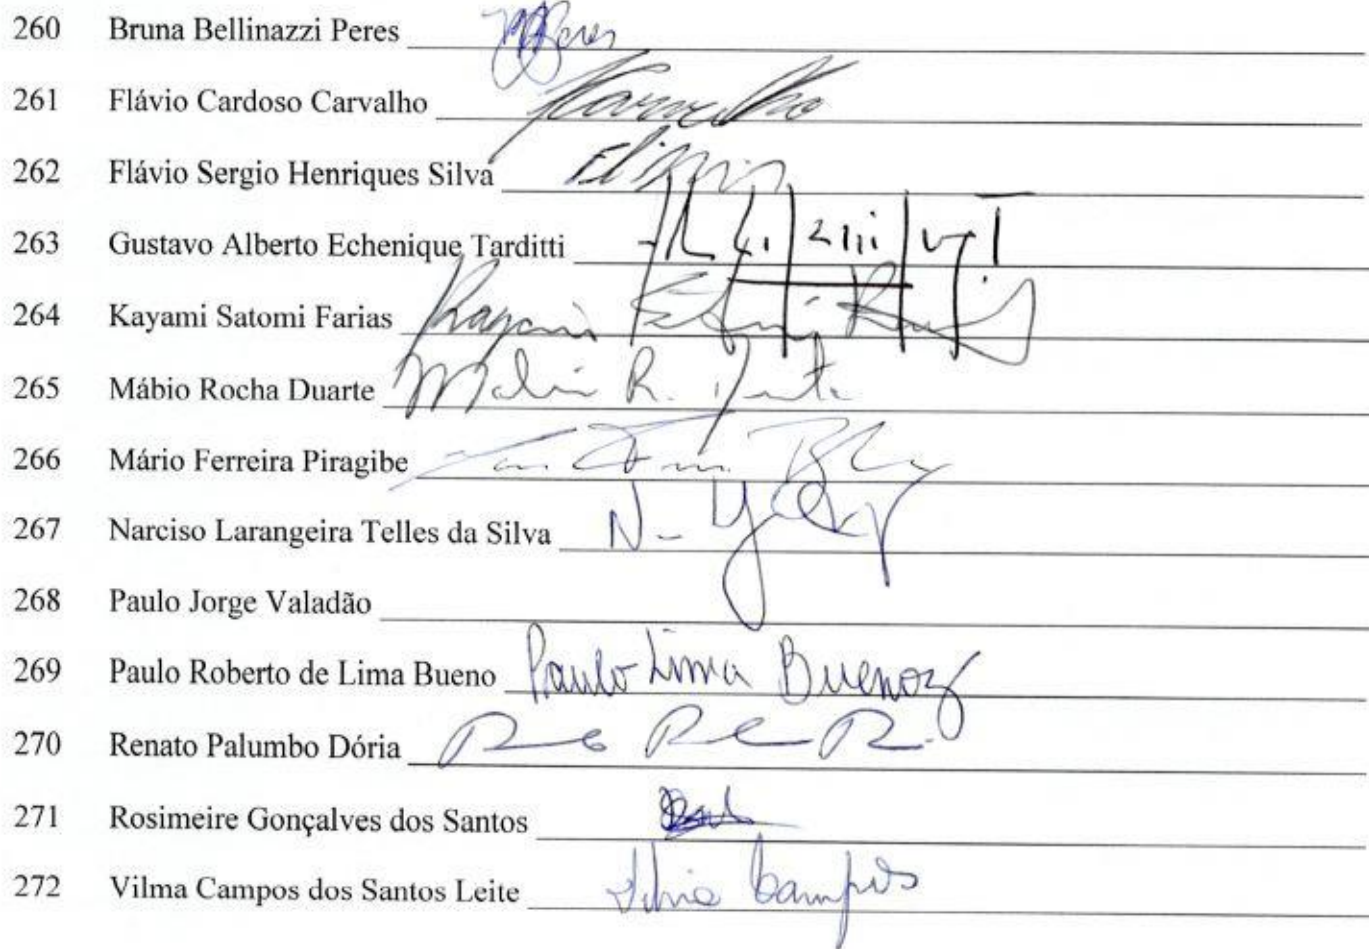 260 Bruna Bellinazzi Peres
261 Flávio Cardoso Carvalho Carvalho
262 Flávio Sergio Henriques Silva
263 Gustavo Alberto Echenique Tarditti
264 Kayami Satomi Farias Kayami
265 Mábio Rocha Duarte Mabio R. Duarte
266 Mário Ferreira Piragibe
267 Narciso Larangeira Telles da Silva
268 Paulo Jorge Valadão
269 Paulo Roberto de Lima Bueno Paulo Lima Bueno
270 Renato Palumbo Dória
271 Rosimeire Gonçalves dos Santos
272 Vilma Campos dos Santos Leite Campos